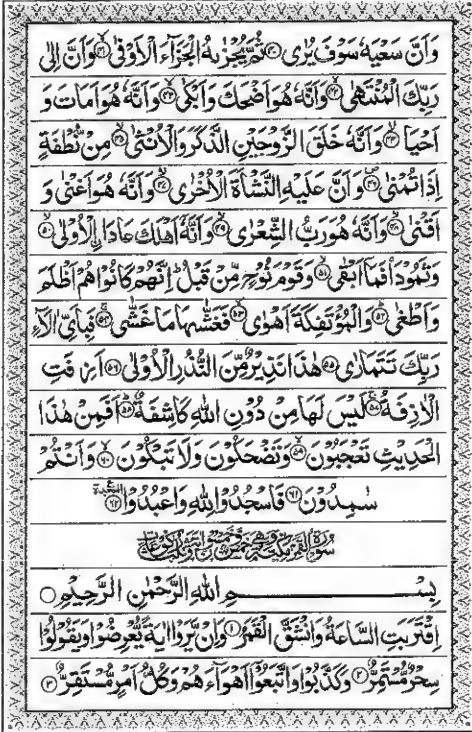 وَاَنَّ سَعْيَهٗ سَوْفَ يُرٰى ﴿۴۰﴾ ثُمَّ يُجْزٰىهُ الْجَزَآءَ الْاَوْفٰى ﴿۴۱﴾ وَاَنَّ اِلٰى
رَبِّكَ الْمُنْتَهٰى ﴿۴۲﴾ وَاَنَّهٗ هُوَ اَضْحَكَ وَاَبْكٰى ﴿۴۳﴾ وَاَنَّهٗ هُوَ اَمَاتَ وَ
اَحْيَا ﴿۴۴﴾ وَاَنَّهٗ خَلَقَ الزَّوْجَيْنِ الذَّكَرَ وَالْاُنْثٰى ﴿۴۵﴾ مِنْ نُّطْفَةٍ
اِذَا تُمْنٰى ﴿۴۶﴾ وَاَنَّ عَلَيْهِ النَّشْاَةَ الْاُخْرٰى ﴿۴۷﴾ وَاَنَّهٗ هُوَ اَغْنٰى وَ
اَقْنٰى ﴿۴۸﴾ وَاَنَّهٗ هُوَ رَبُّ الشِّعْرٰى ﴿۴۹﴾ وَاَنَّهٗٓ اَهْلَكَ عَادَا ۨالْاُوْلٰى ﴿۵۰﴾
وَثَمُوْدَا۠ فَمَآ اَبْقٰى ﴿۵۱﴾ وَقَوْمَ نُوْحٍ مِّنْ قَبْلُ ؕ اِنَّهُمْ كَانُوْا هُمْ اَظْلَمَ
وَاَطْغٰى ﴿۵۲﴾ وَالْمُؤْتَفِكَةَ اَهْوٰى ﴿۵۳﴾ فَغَشّٰىهَا مَا غَشّٰى ﴿۵۴﴾ فَبِاَىِّ اٰلَآءِ
رَبِّكَ تَتَمَارٰى ﴿۵۵﴾ هٰذَا نَذِيْرٌ مِّنَ النُّذُرِ الْاُوْلٰى ﴿۵۶﴾ اَزِفَتِ
الْاٰزِفَةُ ﴿۵۷﴾ لَيْسَ لَهَا مِنْ دُوْنِ اللّٰهِ كَاشِفَةٌ ﴿۵۸﴾ اَفَمِنْ هٰذَا
الْحَدِيْثِ تَعْجَبُوْنَ ﴿۵۹﴾ وَتَضْحَكُوْنَ وَلَا تَبْكُوْنَ ﴿۶۰﴾ وَاَنْتُمْ
سٰمِدُوْنَ ﴿۶۱﴾ فَاسْجُدُوْا لِلّٰهِ وَاعْبُدُوْا ﴿۶۲﴾ السجدة
سُوْرَةُ الْقَمَرِ مَكِّيَّةٌ وَهِيَ خَمْسٌ
بِسْمِ اللّٰهِ الرَّحْمٰنِ الرَّحِيْمِ
اِقْتَرَبَتِ السَّاعَةُ وَانْشَقَّ الْقَمَرُ ﴿۱﴾ وَاِنْ يَّرَوْا اٰيَةً يُّعْرِضُوْا وَيَقُوْلُوْا
سِحْرٌ مُّسْتَمِرٌّ ﴿۲﴾ وَكَذَّبُوْا وَاتَّبَعُوْٓا اَهْوَآءَهُمْ وَكُلُّ اَمْرٍ مُّسْتَقِرٌّ ﴿۳﴾